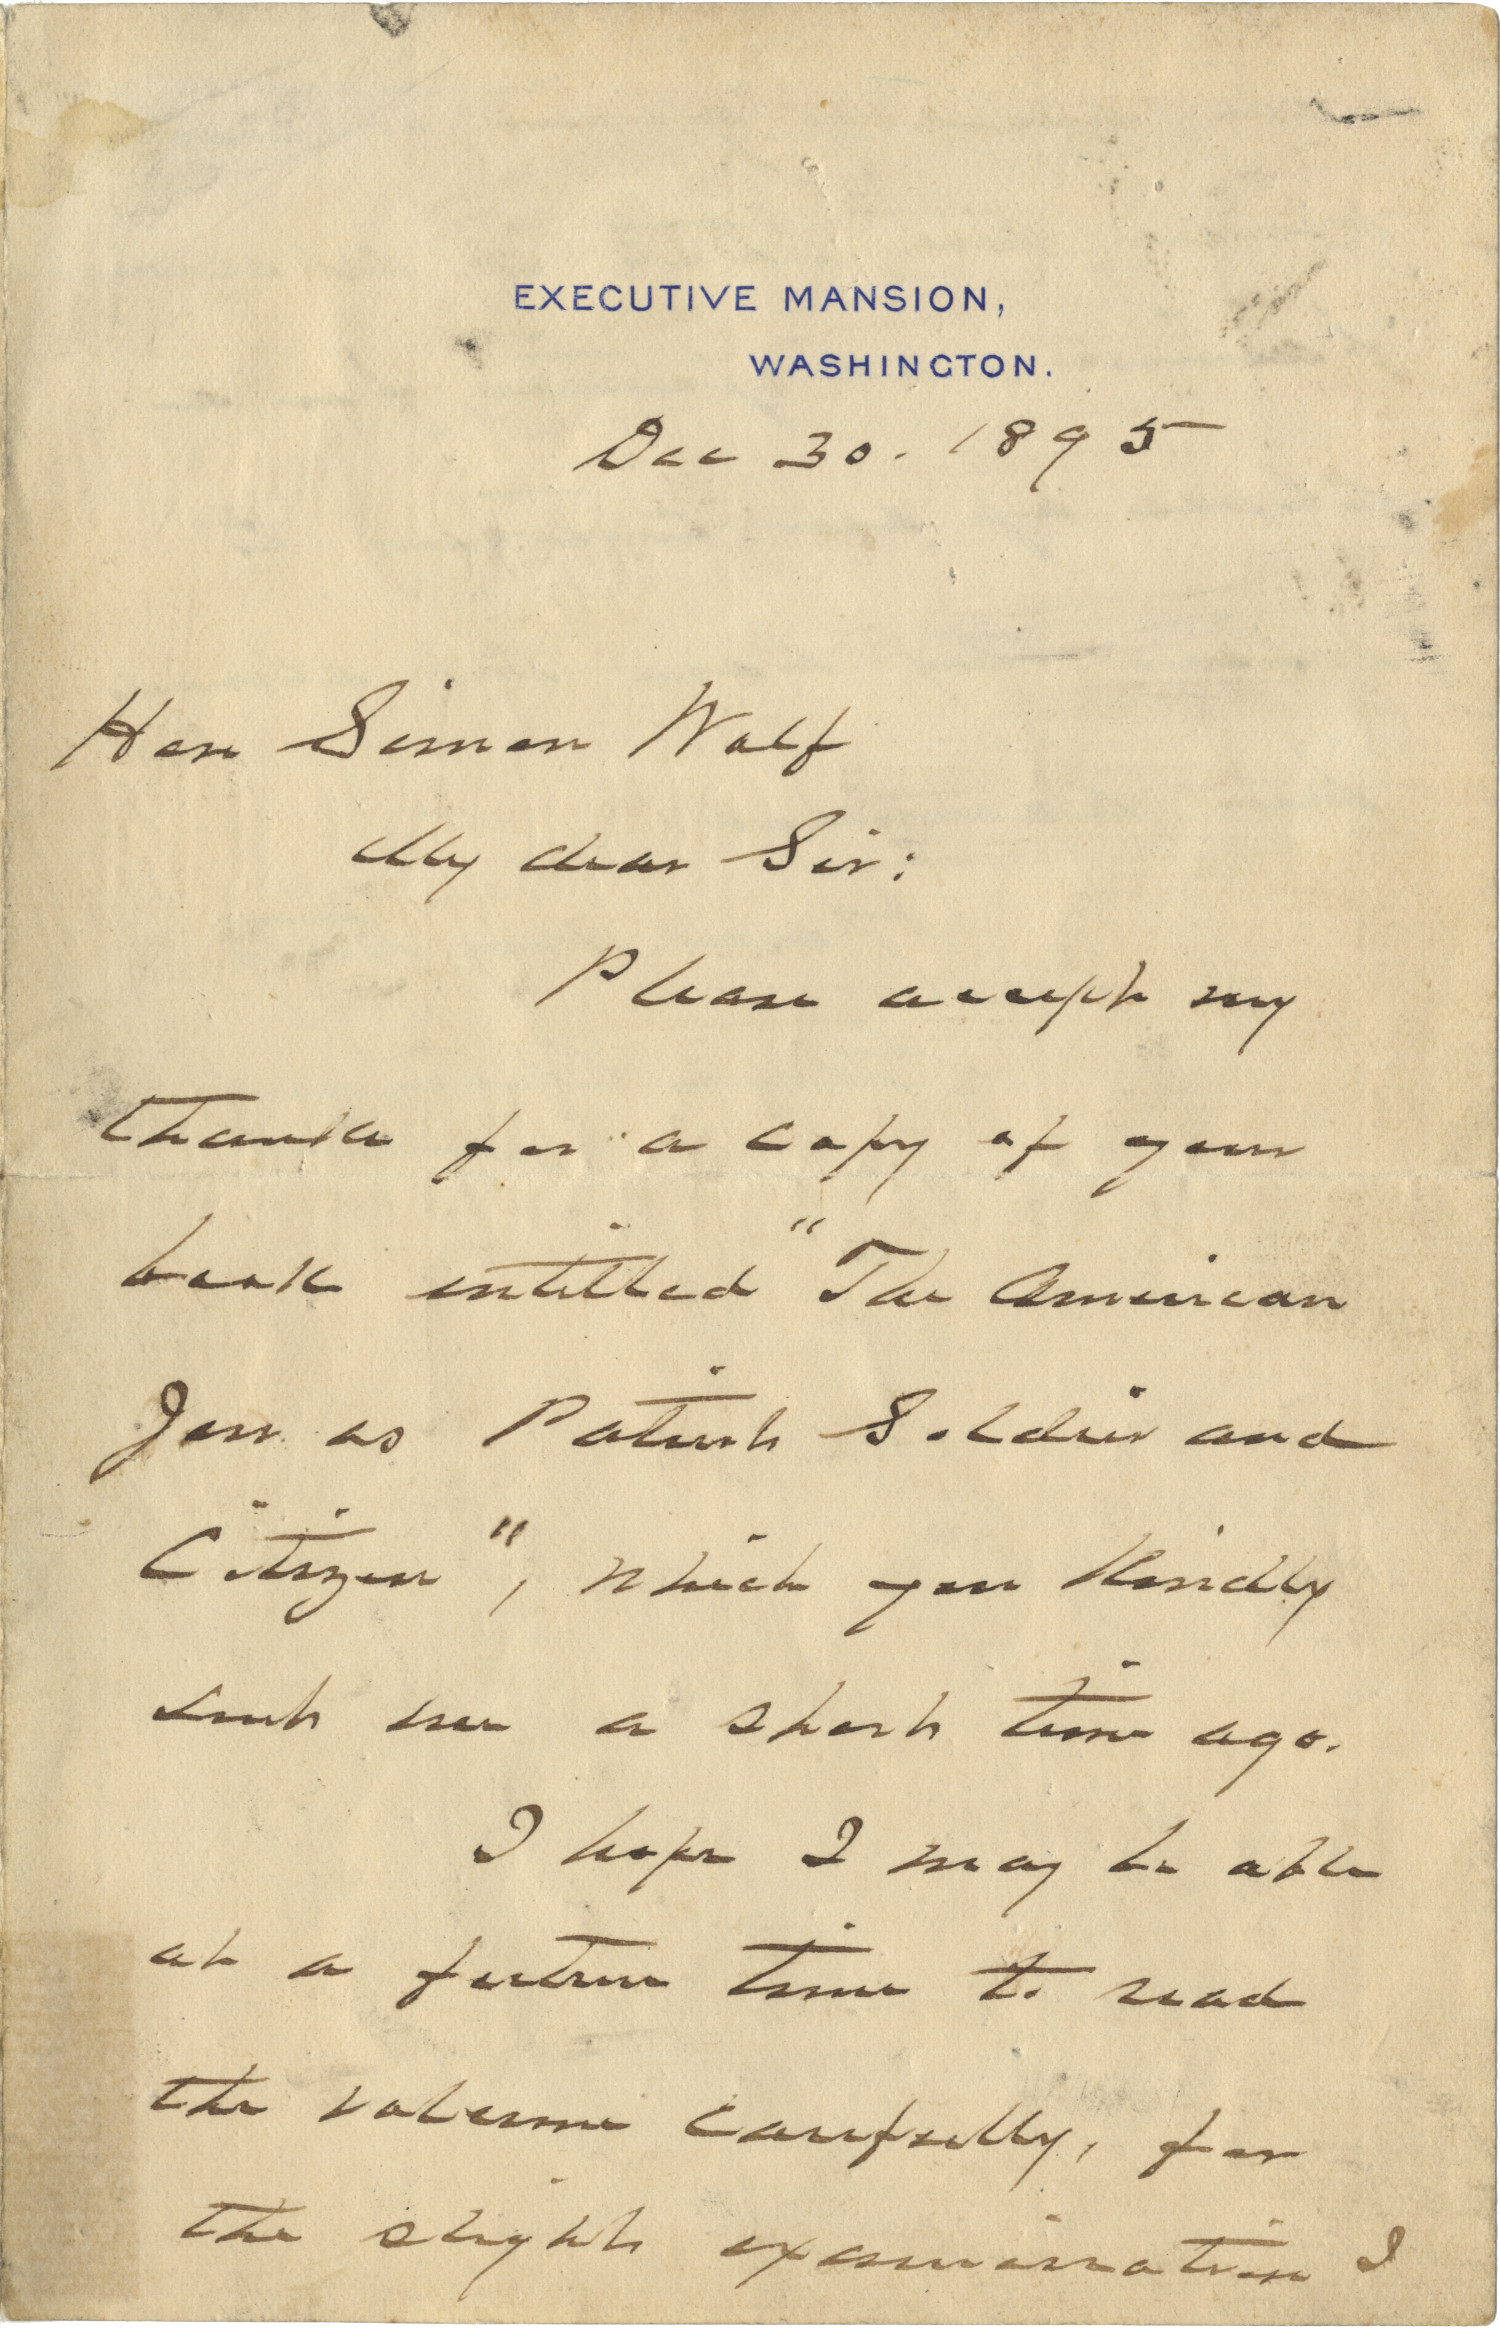 EXECUTIVE MANSION,
WASHINGTON.
Dec 30. 1895
Hon Simon Wolf
My dear Sir:
Please accept my
thanks for a copy of your
book entitled "The American
Jew as Patriot Soldier and
Citizen", which you kindly
sent me a short time ago.
I hope I may be able
at a future time to read
the volume carefully, for
the slight examination I